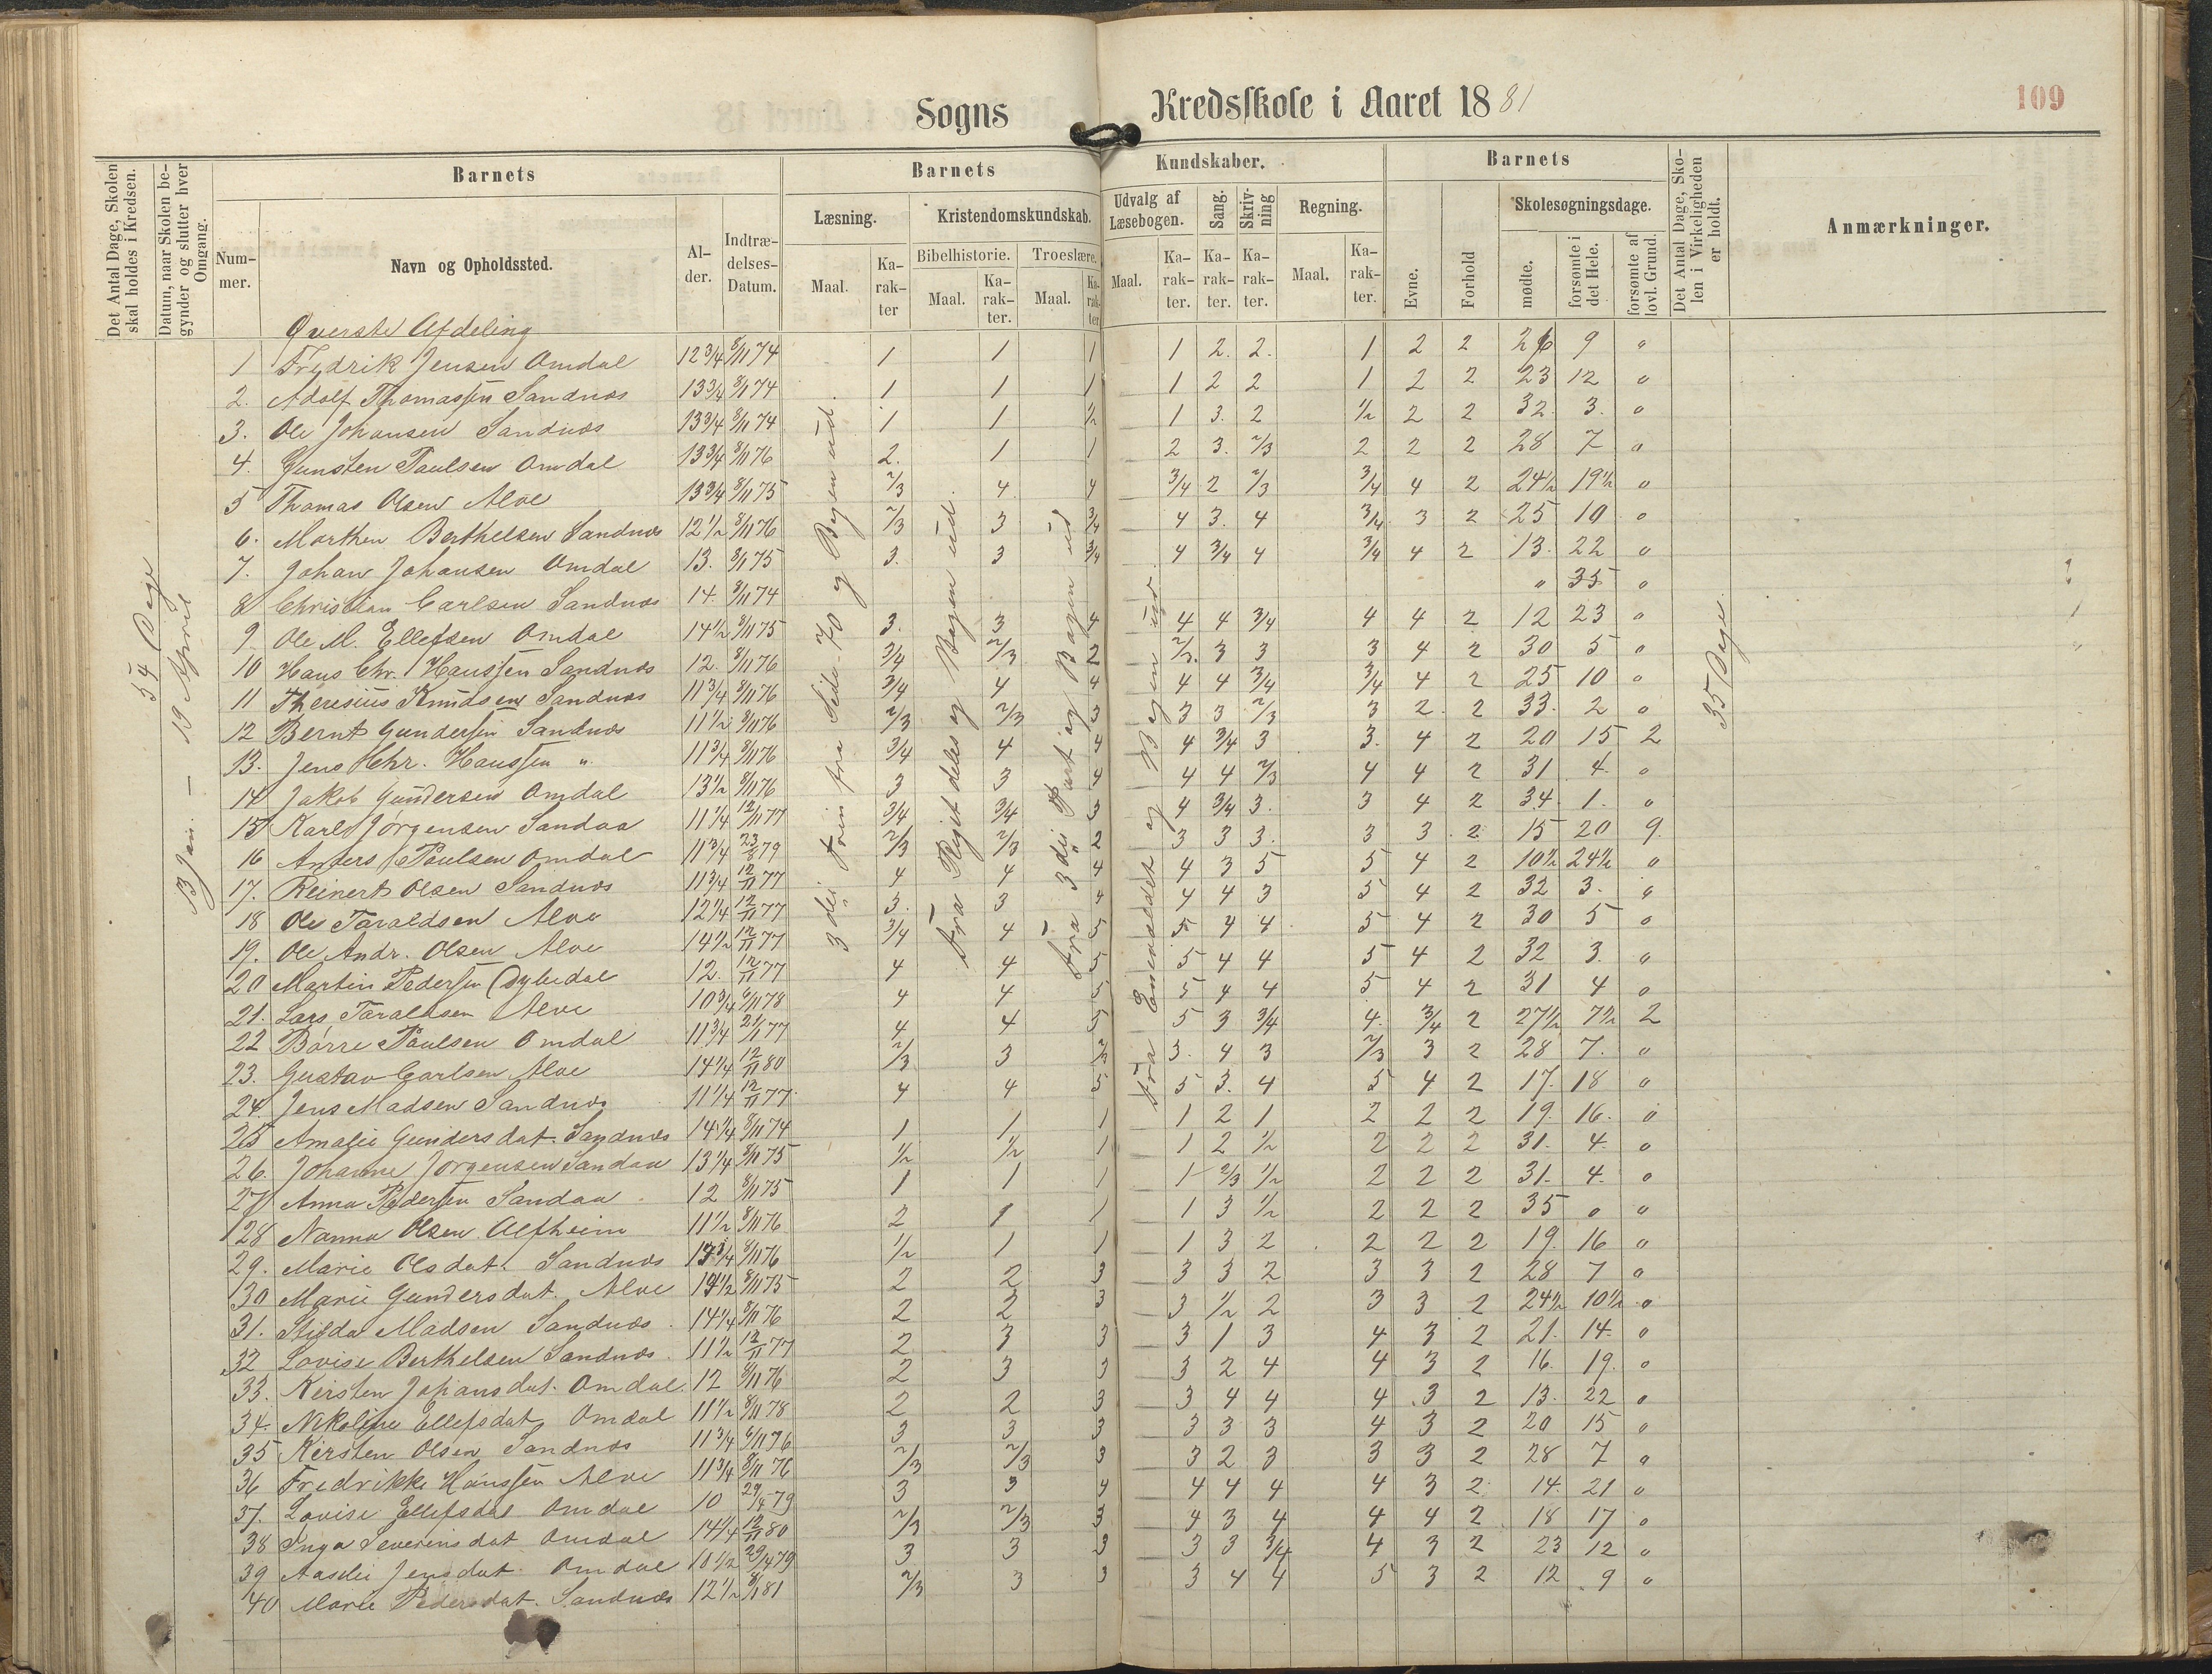 Sogns Kredsskole i Aaret 1881
109
Det Antal Dage, Skolen skal holdes i Kredsen.
Datum, naar Skolen begynder og slutter hver Omgang.
Barnets
Nummer.
Navn og Opholdssted.
Alder.
Indtrædelses-Datum.
Barnets Kundskaber.
Læsning.
Maal.
Karakter
Kristendomskundskab.
Bibelhistorie.
Maal.
Karakter.
Troeslære.
Maal.
Karakter
Udvalg af Læsebogen.
Maal.
Karakter.
Sang.
Karakter.
Skrivning
Karakter.
Regning.
Maal.
Karakter.
Barnets
Evne.
Forhold
Skolesøgningsdage.
mødte.
forsømte i det Hele.
forsømte af lovl. Grund.
Det Antal Dage, Skolen i Virkeligheden er holdt.
Anmærkninger.
54 Dage
13 Jan. — 19 April
35 Dage
Øverste Afdeling
1 Frydrik Jensen Omdal 12 3/4 8/11 74 1 1 1 1 2. 2. 1 2 2 26 9 "
2. Adolf Thomassen Sandnæs 13 3/4 8/11 74 1 1 1 1 2 2 1 2 2 23 12 "
3. Ole Johansen Sandnæs 13 3/4 8/11 74 1 1 1/2 1 3. 2 1/2 2 2 32. 3. "
4. Gunsten Paulsen Omdal 13 3/4 8/11 76 2. 1 1 2 3. 2/3 2 2 2 28 7 "
5 Thomas Olsen Alve 13 3/4 8/11 75 2/3 4 4 3/4 2 2/3 3/4 4 2 24 1/2 19 1/2 "
6. Marthin Berthelsen Sandnæs 12 1/2 8/11 76 2/3 3 3/4 4 3. 4 3/4 3 2 25 10 "
7. Johan Johansen Omdal 13. 8/11 75 3. 3 3/4 4 3/4 4 3/4 4 2 13. 22 "
8 Christian Carlsen Sandnæs 14. 8/11 74 " 35 "
9. Ole M. Ellefsen Omdal 14 1/2 8/11 75 3. 3 4 4 4 3/4 4 4 2 12 23 "
10 Hans Chr. Hanssen Sandnæs 12. 8/11 76 3/4 2/3 2 2/3. 3 3 3 4 2 30 5 "
11 Theresius Knudsen Sandnæs 11 3/4 8/11 76 3/4 4 4 4 4 3/4 3/4 4 2 25 10 "
12 Bernt Gundersen Sandnæs 11 1/2 8/11 76 2/3 2/3 3 3 3 2/3 3 2 2 33. 2 "
13. Jens Chr. Hanssen " 11 3/4 8/11 76 3/4 4 4 4 3/4 3 3. 4 2 20 15 2
14 Jakob Gundersen Omdal 13 1/2 8/11 76 3 3 4 4 4 2/3 4 4 2 31 4. "
15 Karl Jørgensen Sandaa 11 1/4 12/11 77 3/4 3/4 3 4 3/4 3. 3 4 2 34. 1. "
16 Anders Paulsen Omdal 11 3/4 23/8 79 2/3 2/3 2 3 3 3. 3 3 2 15 20 9
17. Reinert Olsen Sandnæs 11 3/4 12/11 77 4 4 4 4 3 5 5 4 2 10 1/2 24 1/2 "
18 Ole Taraldsen Alve 12 1/4 12/11 77 3. 3 4 4 4 3 5 4 2 32 3. "
19. Ole Andr. Olsen Alve 14 1/2 12/11 77 3/4 4 5 5 4 4 5 4 2 30 5 "
20 Martin Pedersen Dybedal 12. 12/11 77 4 4 5 5 4 4 5 4 2 32 3. "
21. Lars Taraldsen Alve 10 3/4 6/11 78 4 4 5 5 4 4 5 4 2 31 4 "
22 Børre Paulsen Omdal 11 3/4 21/1 77 4 4 5 5 3 3/4 4. 3/4 2 27 1/2 7 1/2 2
23. Gustav Carlsen Alve 14 1/4 12/11 80 2/3 3 2/3 3. 4 3 2/3 3 2 28 7. "
24. Jens Madsen Sandnæs 11 1/4 12/11 77 4 4 5 5 3. 4 5 4 2 17. 18 "
25 Amalie Gundersdat. Sandnæs 14 1/4 8/11 74 1 1 1 1 2 1 2 2 2 19. 16. "
26. Johanne Jørgensen Sandaa 13 1/4 8/11 75 1/2 1/2 1 1 2 1/2 2 2 2 31. 4. "
27 Anna Pedersen Sandaa 12 8/11 75 1 1 1 1 2/3 1/2 2 2 2 31. 4. "
28 Nanna Olsen Alfheim 11 1/2 8/11 76 2 1 1 1 3 1/2 2 2 2 35 " "
29. Marie Olsdat. Sandnæs 13 3/4 8/11 76 1/2 1 1 1 3 2 2 2 2 19. 16 "
30 Marie Gundersdat. Alve 14 1/2 8/11 75 2 2 3 3 3 2 3 3 2 28 7 "
31. Hilda Madsen Sandnæs 14 1/4 8/11 76 2 2 3 3 1/2 2 3 3 2 24 1/2 10 1/2 "
32 Lovise Berthelsen Sandnæs 11 1/2 12/11 77 2 3 3 3 1 3 4 3 2 21. 14. "
33. Kirsten Johansdat. Omdal 12 8/11 76 2 3 3 3 2 4 4 3 2 16. 19. "
34. Nikoline Ellefsdat Omdal 11 1/2 8/11 78 2 2 3 3 4 4 4 3 2 13. 22 "
35 Kirsten Olsen Sandnæs 11 3/4 6/11 76 3 3 3 3 3 3 4 3 2 20 15 "
36 Fredrikke Hanssen Alve 11 3/4 8/11 76 2/3 2/3 3 3 2 3 3 3 2 28 7 "
37. Lovise Ellefsdat Omdal 10 29/4 79 3 3 4 4 4 4 4 3 2 14. 21 "
38 Inga Severinsdat Omdal 14 1/4 12/11 80 2/3 2/3 3 4 3 4 4 4 2 18 17 "
39 Aaslei Jensdat. Omdal 10 1/2 29/4 79 3 3 3 3 3 3/4 4 3 2 23 12 "
40 Marie Pedersdat. Sandnæs 12 1/2 8/1 81 2/3 3 3 3 4 4 5 3 2 12 9 "
3die Trin fra Side 70 og Bogen ud.
Fra Rigets deles og Bogen ud.
Fra 3die Part og Bogen ud
Fra Enevældet og Bogen ud